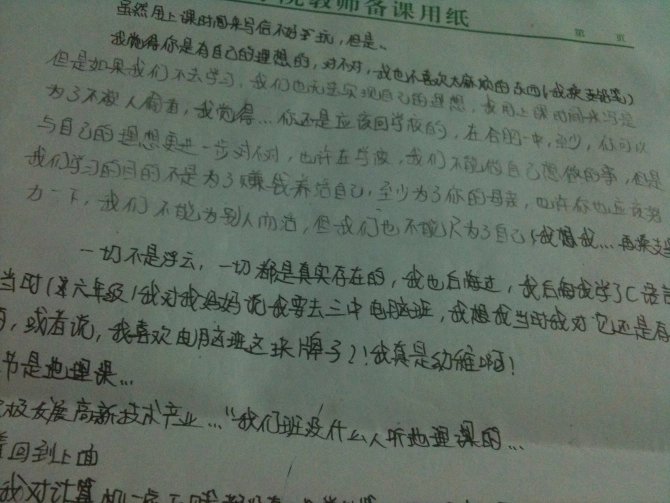 院教师备课用纸
第 页
虽然用上课时间来写信不好玩,但是..
我觉得你是有自己的理想的,对不对,我也不喜欢太麻烦的东西(我换支铅笔)
但是如果我们不去学习,我们也无法实现自己的理想,我用上课时间来写是
为了不被人偷看,我觉得...你还是应该回学校的,在合肥一中,至少,你可以
与自己的理想更进一步对不对,也许在学校,我们不能做自己想做的事,但是
我们学习的目的不是为了赚钱养活自己,至少为了你的母亲,也许你也应该努
力一下,我们不能为别人而活,但我们也不能只为了自己(我想我...再来支
一切不是浮云,一切都是真实存在的,我也后悔过,我后悔我学了C语言
当时(第六年级)我对我妈妈说我要去三中电脑班,我想我当时我对它还是有
,或者说,我喜欢电脑班这块牌子?!我真是幼稚啊!
节是地理课...
极发展高新技术产业..."我们班没什么人听地理课的...
回到上面
我对计算机一点